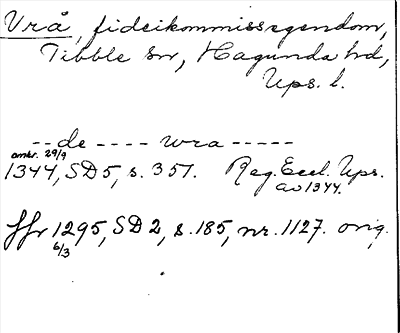 Vrå, fideikommissegendom,
Tibble sn, Hagunda hd,
Ups. l.
-- de ---- wra -----
omkr. 29/9
1344, SD 5, s. 351. Reg. Eccl. Ups.
av 1344.
ffr 1295, SD 2, s. 185, nr. 1127. orig.
6/3